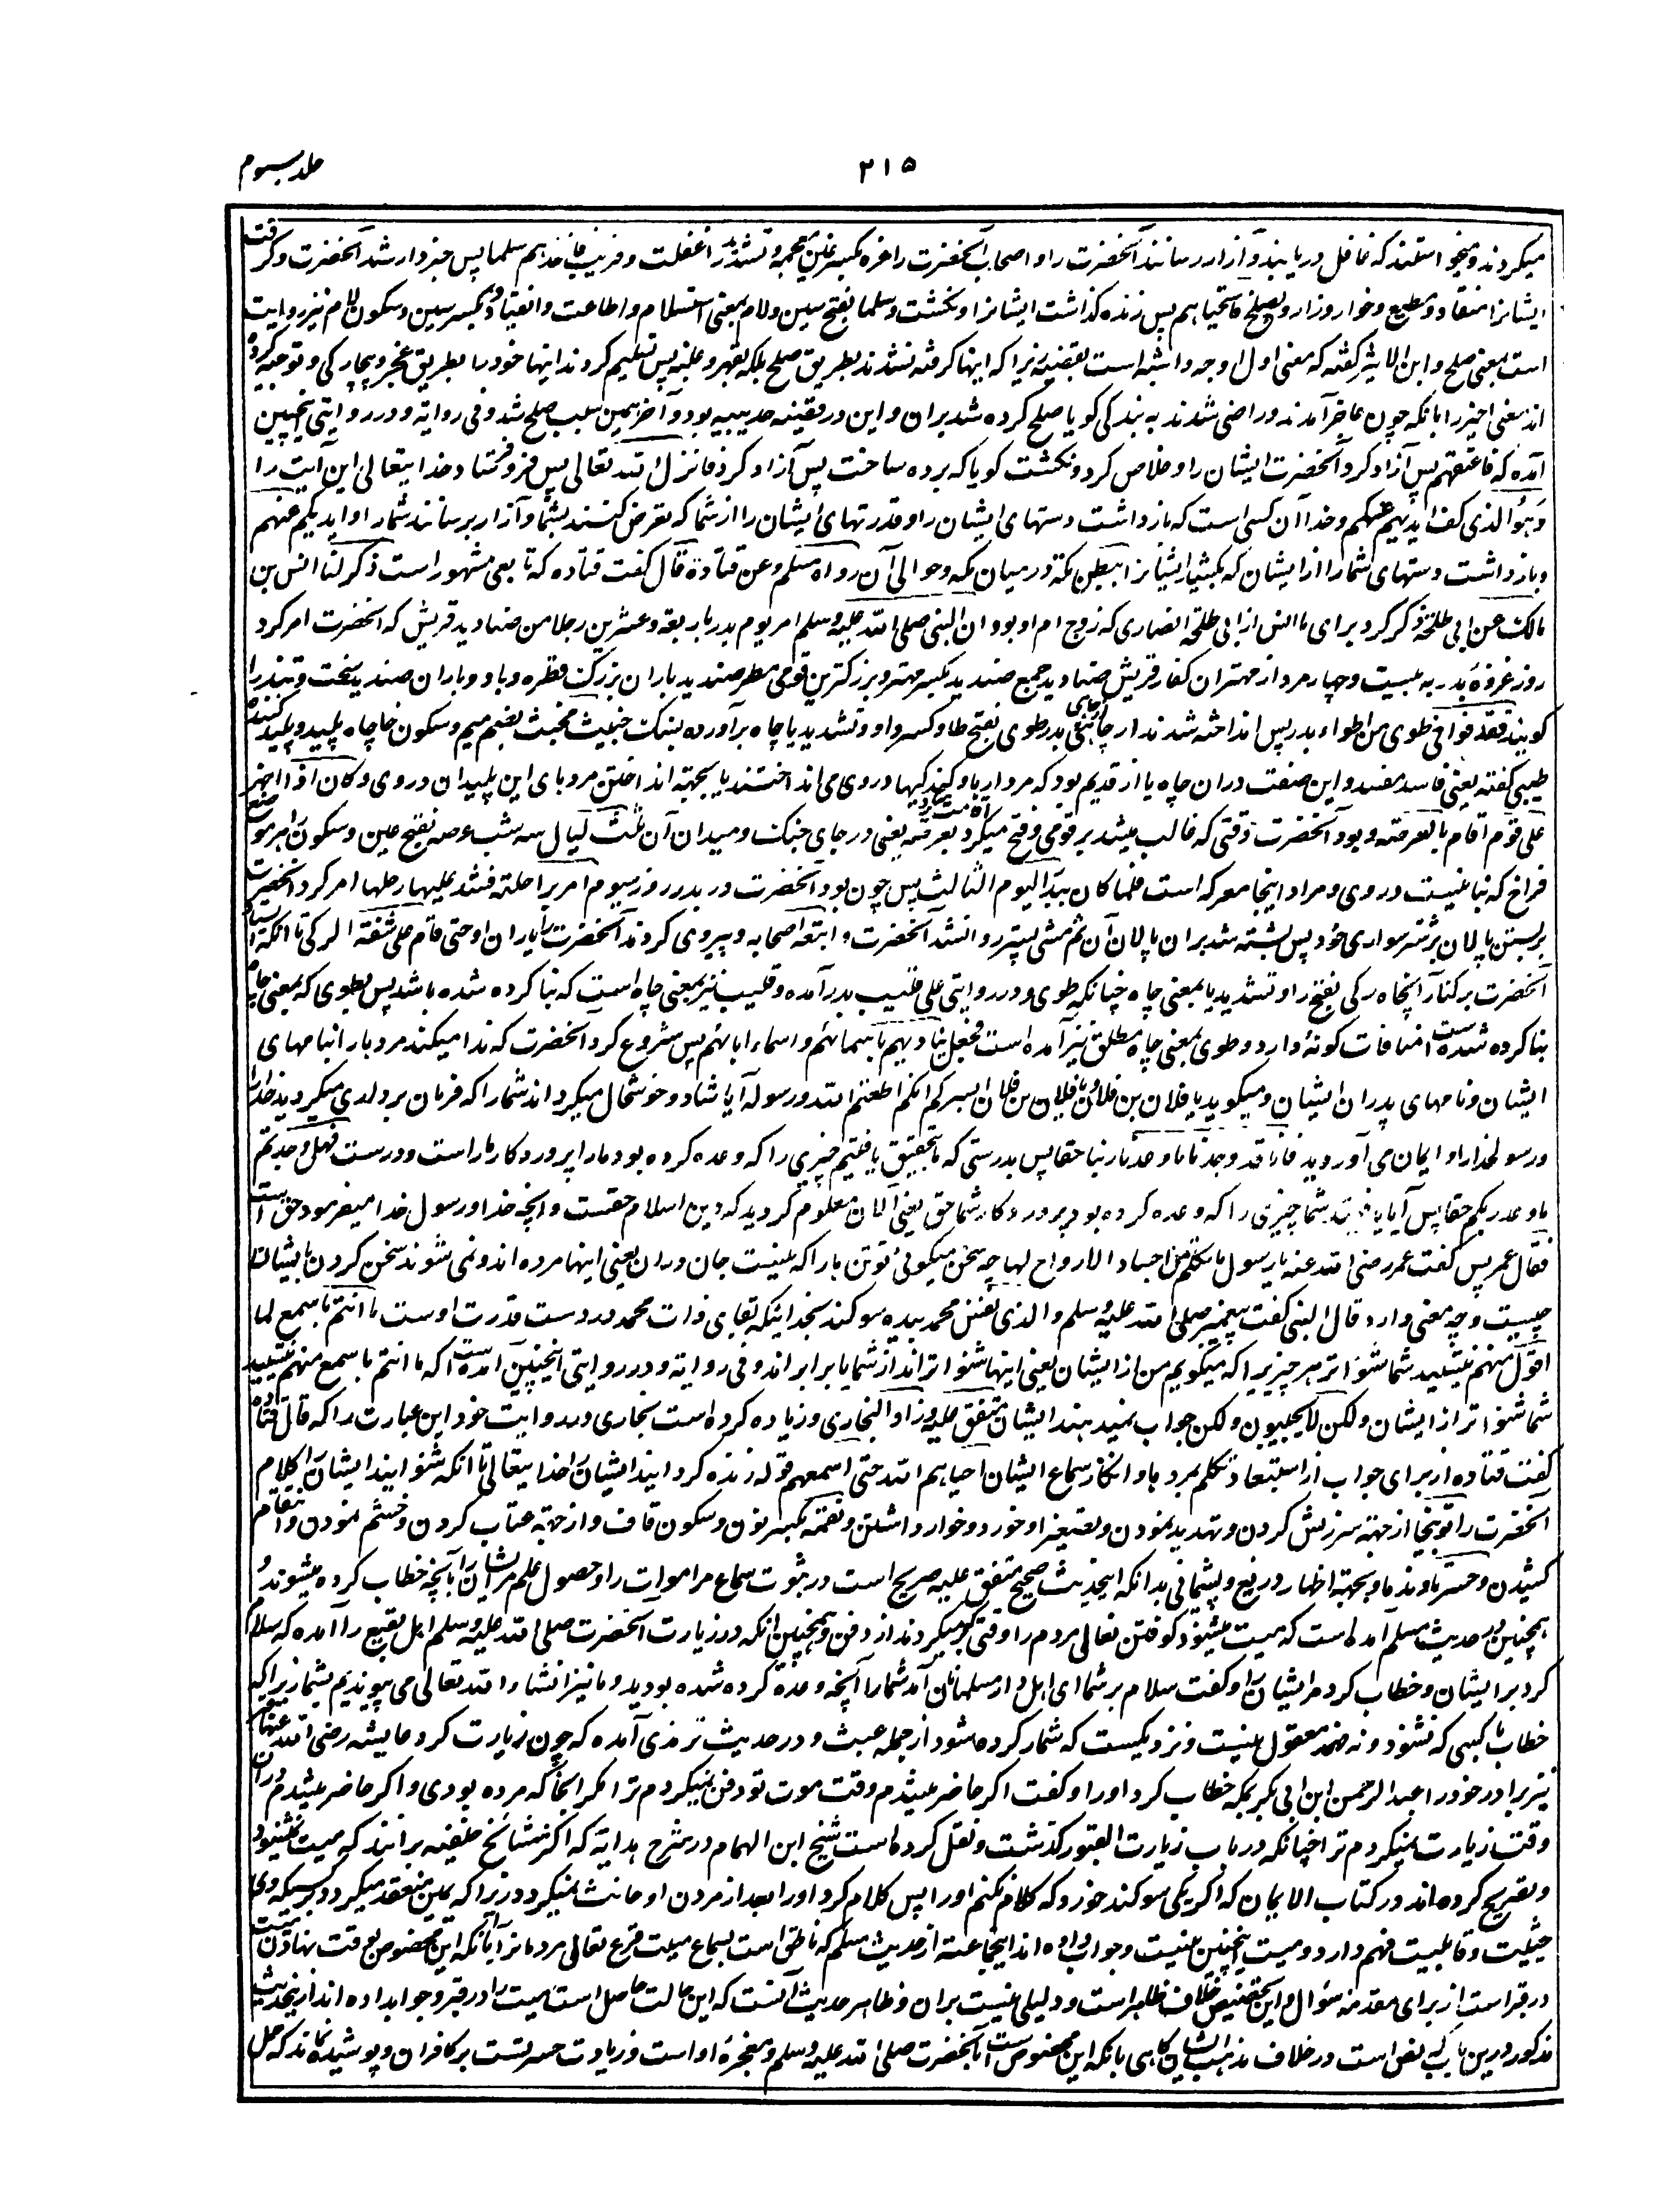 ۲۱۵ جلد سیوم
میکردند و میخواستند که غافل دریابند و آزار رسانند آنحضرت را و اصحاب آنحضرت را غره بکسر غین معجمه و تشدید را غفلت و فریب فاخذهم سلما پس خبردار شد آنحضرت و گرفت
ایشانرا منقاد و مطیع و خوار و زار و بصلح فاستحیاهم پس زنده گذاشت ایشانرا و نکشت و سلما بفتح سین و لام بمعنی استسلام و اطاعت و انقیاد و بکسر سین و سکون لام نیز روایت
است بمعنی صلح و ابن الاثیر گفته که معنی اول اوجه و اشبه است بقضیه زیرا که اینها گرفته نشدند بطریق صلح بلکه بقهر و غلبه پس تسلیم کردند اینها خود را بطریق عجز و بیچارگی و توجیه کرده
اند معنی اخیر را بانکه چون عاجز آمدند و راضی شدند به بندگی گویا صلح کرده شد بران و این در قضیه حدیبیه بود و آخر همین سبب صلح شد و فی روایة و در روایتی اینچنین
آمده که فاعتقهم پس آزاد کرد آنحضرت ایشان را و خلاص کرد و نکشت گویا که برده ساخت پس آزاد کرد فانزل الله تعالی پس فرو فرستاد خدا یتعالی این آیت را
و هو الذی کف ایدیهم عنکم و خدا آن کسی است که بازداشت دستهای ایشان را و قدرتهای ایشان را از شما که تعرض کنند بشما و آزار برسانند شمارا و ایدیکم عنهم
و بازداشت دستهای شما را از ایشان که بکشید ایشانرا ببطن مکة در میان مکه و حوالی آن رواه مسلم و عن قتادة قال گفت قتاده که تابعی مشهور است ذکر لنا انس بن
مالک عن ابی طلحة ذکر کرد برای ما انس از ابی طلحه انصاری که زوج ام او بود ان النبی صلی الله علیه و سلم امر یوم بدر باربعة و عشرین رجلا من صنادید قریش که آنحضرت امر کرد
روز غزوه بدر به بیست و چهار مرد از مهتران کفار قریش صنادید جمع صندید بکسر مهتر و بزرگترین قومی مطر صندید باران بزرگ قطره و باد و باران صندید سخت و تند را
گویند فقذفوا فی طوی من اطواء بدر پس انداخته شدند در چاهی از چاههای بدر طوی بفتح طا و کسر واو و تشدید یا چاه برآورده بسنگ خبیث مخبث بضم میم و سکون خا چاه پلید و پلید کننده
طیبی گفته یعنی فاسد مفسد و این صفت دران چاه یا از قدیم بود که مردارها و گندگیها در وی می انداختند یا بجهته انداختن مردهای این پلیدان در وی و کان اذا ظهر
علی قوم اقام بالعرصة و بود آنحضرت وقتی که غالب میشد بر قومی و فتح میکرد بعرصه یعنی در جای جنگ و میدان آن ثلث لیال سه شب عرصه بفتح عین و سکون را هر موضع
فراخ که بنا نیست در وی و مراد اینجا معرکه است فلما کان ببدر الیوم الثالث پس چون بود آنحضرت در بدر روز سیوم امر براحلته فشد علیها رحلها امر کرد آنحضرت
بربستن پالان بر شتر سواری خود پس بسته شد بران پالان آن ثم مشی پستر روان شد آنحضرت و اتبعه اصحابه و پیروی کردند آنحضرت را یاران او حتی قام علی شفة الرکی تا آنکه ایستاد
آنحضرت بر کنار آنچاه رکی بفتح را و تشدید یا بمعنی چاه چنانکه طوی و در روایتی علی قلیب بدر آمده و قلیب نیز بمعنی چاه است که بنا کرده شده باشد پس بطوی که بمعنی چاه
بنا کرده شده است منافات گونه دارد و طوی بمعنی چاه مطلق نیز آمده است فجعل ینادیهم باسمائهم و اسماء ابائهم پس شروع کرد آنحضرت که ندا میکند مردهار انبامهای
ایشان و نامهای پدران ایشان و میگوید یا فلان بن فلان و یا فلان بن فلان ایسرکم انکم اطعتم الله و رسوله آیا شاد و خوشحال میگرداند شمارا که فرمان بردادی میکردید خدا را
و رسول خدا را و ایمان می آوردید فانا قد وجدنا ما وعدنا ربنا حقا پس بدرستی که ما بتحقیق یافتیم چیزی را که وعده کرده بود مارا پروردگار ما راست و درست فهل وجدتم
ما وعد ربکم حقا پس آیا یافتید شما چیزی را که وعده کرده بود پروردگار شما حق یعنی آلان معلوم کردید که دین اسلام حقست و آنچه خدا و رسول خدا میفرمود حق است
فقال عمر پس گفت عمر رضی الله عنه یا رسول الله ما تکلم من اجساد لا ارواح لها چه سخن میگوئی تو تن ها را که نیست جان در ان یعنی اینها مرده اند و نمی شنوند سخن کردن بایشان
چیست و چه معنی دارد قال النبی گفت پیغمبر صلی الله علیه و سلم و الذی نفس محمد بیده سوگند بخدا اینکه بقای ذات محمد در دست قدرت اوست ما انتم باسمع لما
اقول منهم نیستید شما شنواتر هر چیزیرا که میگویم من از ایشان یعنی اینها شنواتر اند از شما یا برابر اند و فی روایة و در روایتی اینچنین آمده است که ما انتم باسمع منهم نیستید
شما شنواتر از ایشان و لکن لا یجیبون و لکن جواب نمیدهند ایشان متفق علیه و زاد البخاری و زیاده کرده است بخاری در روایت خود این عبارت را که قال قتادة
گفت قتاده از برای جواب از استبعاد تکلم بمردها و انکار سماع ایشان احیاهم الله حتی اسمعهم قوله زنده گردانید ایشان را خدا یتعالی تا آنکه شنوانید ایشان را کلام
آنحضرت را توبیخا از جهته سرزنش کردن و تهدید نمودن و تصغیرا و خورد و خوار داشتن و نقمة بکسر نون و سکون قاف و از جهته عتاب کردن و خشم نمودن و انتقام
کشیدن و حسرة و ندما و بجهته اظهار دریغ و پشیمانی بدانکه اینحدیث صحیح متفق علیه صریح است در ثبوت سماع مر اموات را و حصول علم مر ایشان را بآنچه خطاب کرده میشوند و
همچنین در حدیث مسلم آمده است که میت میشنود کوفتن نعالی مردم را وقتی که برمیگردند از دفن و همچنین آنکه در زیارت آنحضرت صلی الله علیه و سلم اهل بقیع را آمده که سلام
کرد بر ایشان و خطاب کرد مر ایشان را و گفت سلام بر شما ای اهل دار مسلمانان آمد شمارا آنچه وعده کرده شده بودید و ما نیز انشاء الله تعالی می پیوندیم بشما زیرا که
خطاب با کسی که نشنود و نه فهمد معقول نیست و نزدیکست که شمار کرده شود از جمله عبث و در حدیث ترمذی آمده که چون زیارت کرد عایشه رضی الله عنها
نیز برادر خود را عبد الرحمن ابن ابی بکر بمکه خطاب کرد اورا و گفت اگر حاضر میشدم وقت موت تو دفن نمیکردم ترا مگر آنجا که مرده بودی و اگر حاضر میشدم دران
وقت زیارت نمیکردم ترا چنانکه در باب زیارت القبور گذشت و نقل کرده است شیخ ابن الهمام در شرح هدایه که اکثر مشائخ حنفیه برانند که میت نمیشنود
و تصریح کرده اند در کتاب الایمان که اگر یکی سوگند خورد که کلام نکنم اورا پس کلام کرد اورا بعد از مردن او حانث نمیگردد زیرا که یمین منعقد میگردد بر کسیکه وی
حیثیت و قابلیت فهم دارد و میت اینچنین نیست و جواب داده اند اینجماعت از حدیث مسلم که ناطق است بسماع میت قرع نعالی مردمانرا بآنکه این مخصوص بوقت نهادن میت
در قبر است از برای مقدمه سؤال و این تخصیص خلاف ظاهر است و دلیلی نیست بران و ظاهر حدیث آنست که این حالت حاصل است میت را در قبر و جواب داده اند از اینحدیث
مذکور درین باب که نص است در خلاف مذهب ایشان گاهی بانکه این مخصوص است بآنحضرت صلی الله علیه و سلم و معجزه او است و زیادت حسرتست بر کافران و پوشیده نماند که حمل